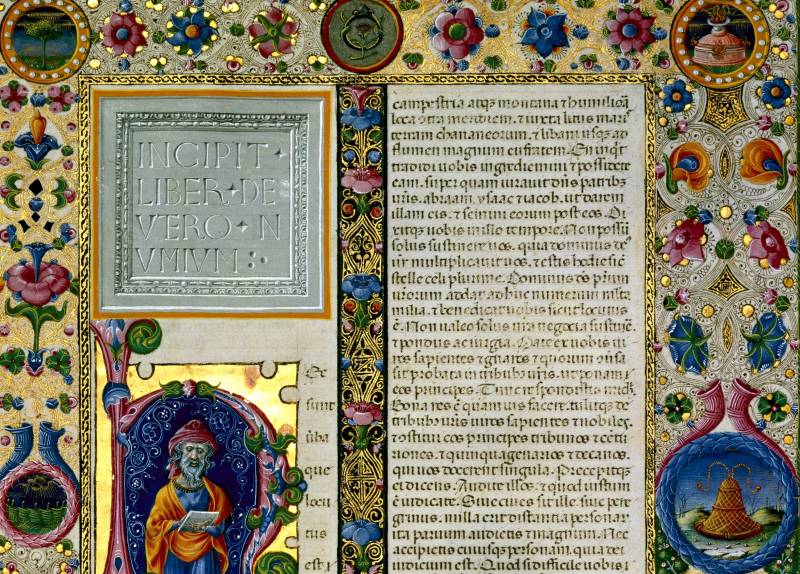 INCIPIT
LIBER DE
VTERO N
VMIVM
Ec
sunt
ũba
que
locu
tus
est
campestria atqȝ montana ⁊ humilioã
loca ↄtra meridiem. ⁊ iuxta litus maris
terram chananeorum. ⁊ libani usqȝ ad
flumen magnum eufraten. En inqt
tradidi uobis ingredimini ⁊ possidete
eam. super quam iurauit dñs patribȝ
uris. abraam. ysaac ⁊ iacob. ut daret
illam eis. ⁊ semini eorum post eos. Di
xitqȝ uobis illo tempore. Non possũ
solus sustinere uos. quia dominus de
ur multiplicauit uos. ⁊ estis hodie sic
stelle celi plurime. Dominus ds patrum
urorum addat ad hunc numerum multa
milia. ⁊ benedicat uobis sicut locutus
ẽ. Non ualeo solus ura negocia sustine
re. ⁊ pondus ac iurgia. Date ex uobis ui
ros sapientes ⁊ gnaros ⁊ quorum ↄusa
sit probata in tribubȝ uris. ut ponam
eos principes. Tunc respondistis mihi.
Bona res ẽ quam uis facere. tuliqȝ de
tribubȝ uris uiros sapientes ⁊ nobiles.
⁊ ↄstitui eos principes tribunos ⁊ centu
riones. ⁊ quinquagenarios ⁊ decanos.
qui uos docerent singula. Precepitqȝ
ei dicens. Audite illos. ⁊ quod iustum
ẽ iudicate. Siue ciuis sit ille. siue pere
grinus. nulla erit distantia personar.
ita paruum audietis ⁊ magnum. Nec
accipietis cuiusqȝ personam. quia dei
iudicium est. Quod si difficile uobis